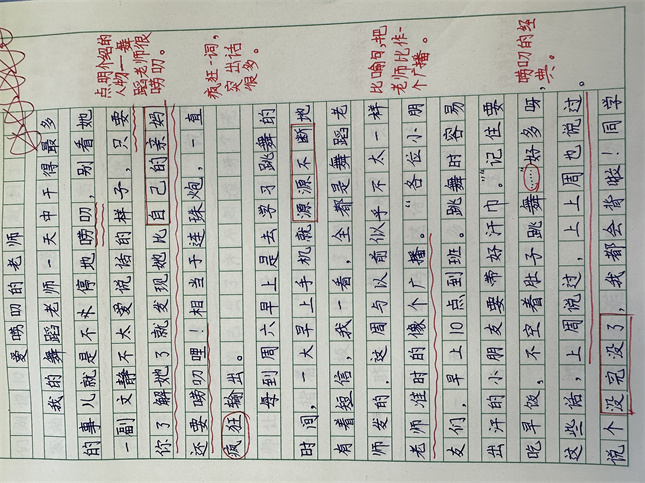 爱唠叨的老师
我的舞蹈老师一天中干得最多
的事儿就是不永停地唠叨,别看她
一副文静不太爱说话的样子,只要
你了解她了就发现她比自己的亲妈
还要唠叨哩!相当于连珠炮,一直
疯狂输出。
每到周六早上是去学习跳舞的
时间,一大早上手机就源源不断地
有着短信,我一看,全都是舞蹈老
师发的。这周与以前似乎不太一样
老师准时的像个广播。“各位小朋
友们,早上10点到班。跳舞时容易
出汗的小朋友要带好汗巾。”“记住要
吃早饭,不空着肚子跳舞……”好多呀,
这些话,上周说过,上上周也说过。
说个没完没了,我都会背啦!同学
点明介绍的
人物——舞
蹈老师很
唠叨。
疯狂一词,
突出话
很多。
比喻句,把
老师比作一
个广播。
唠叨的经
典。